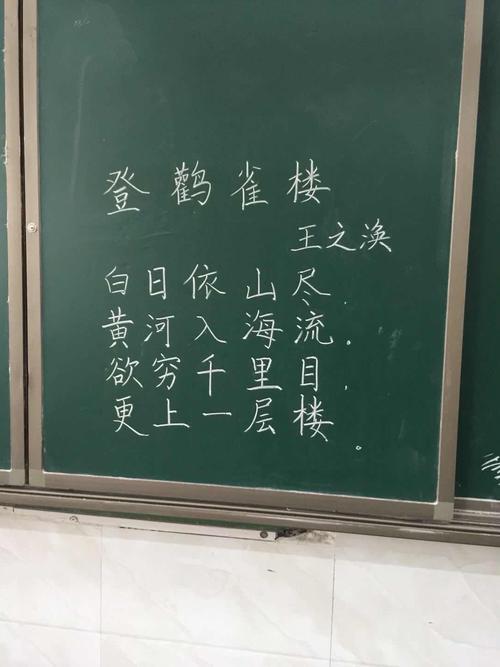 登鹳雀楼
王之涣
白日依山尽、
黄河入海流。
欲穷千里目,
更上一层楼。